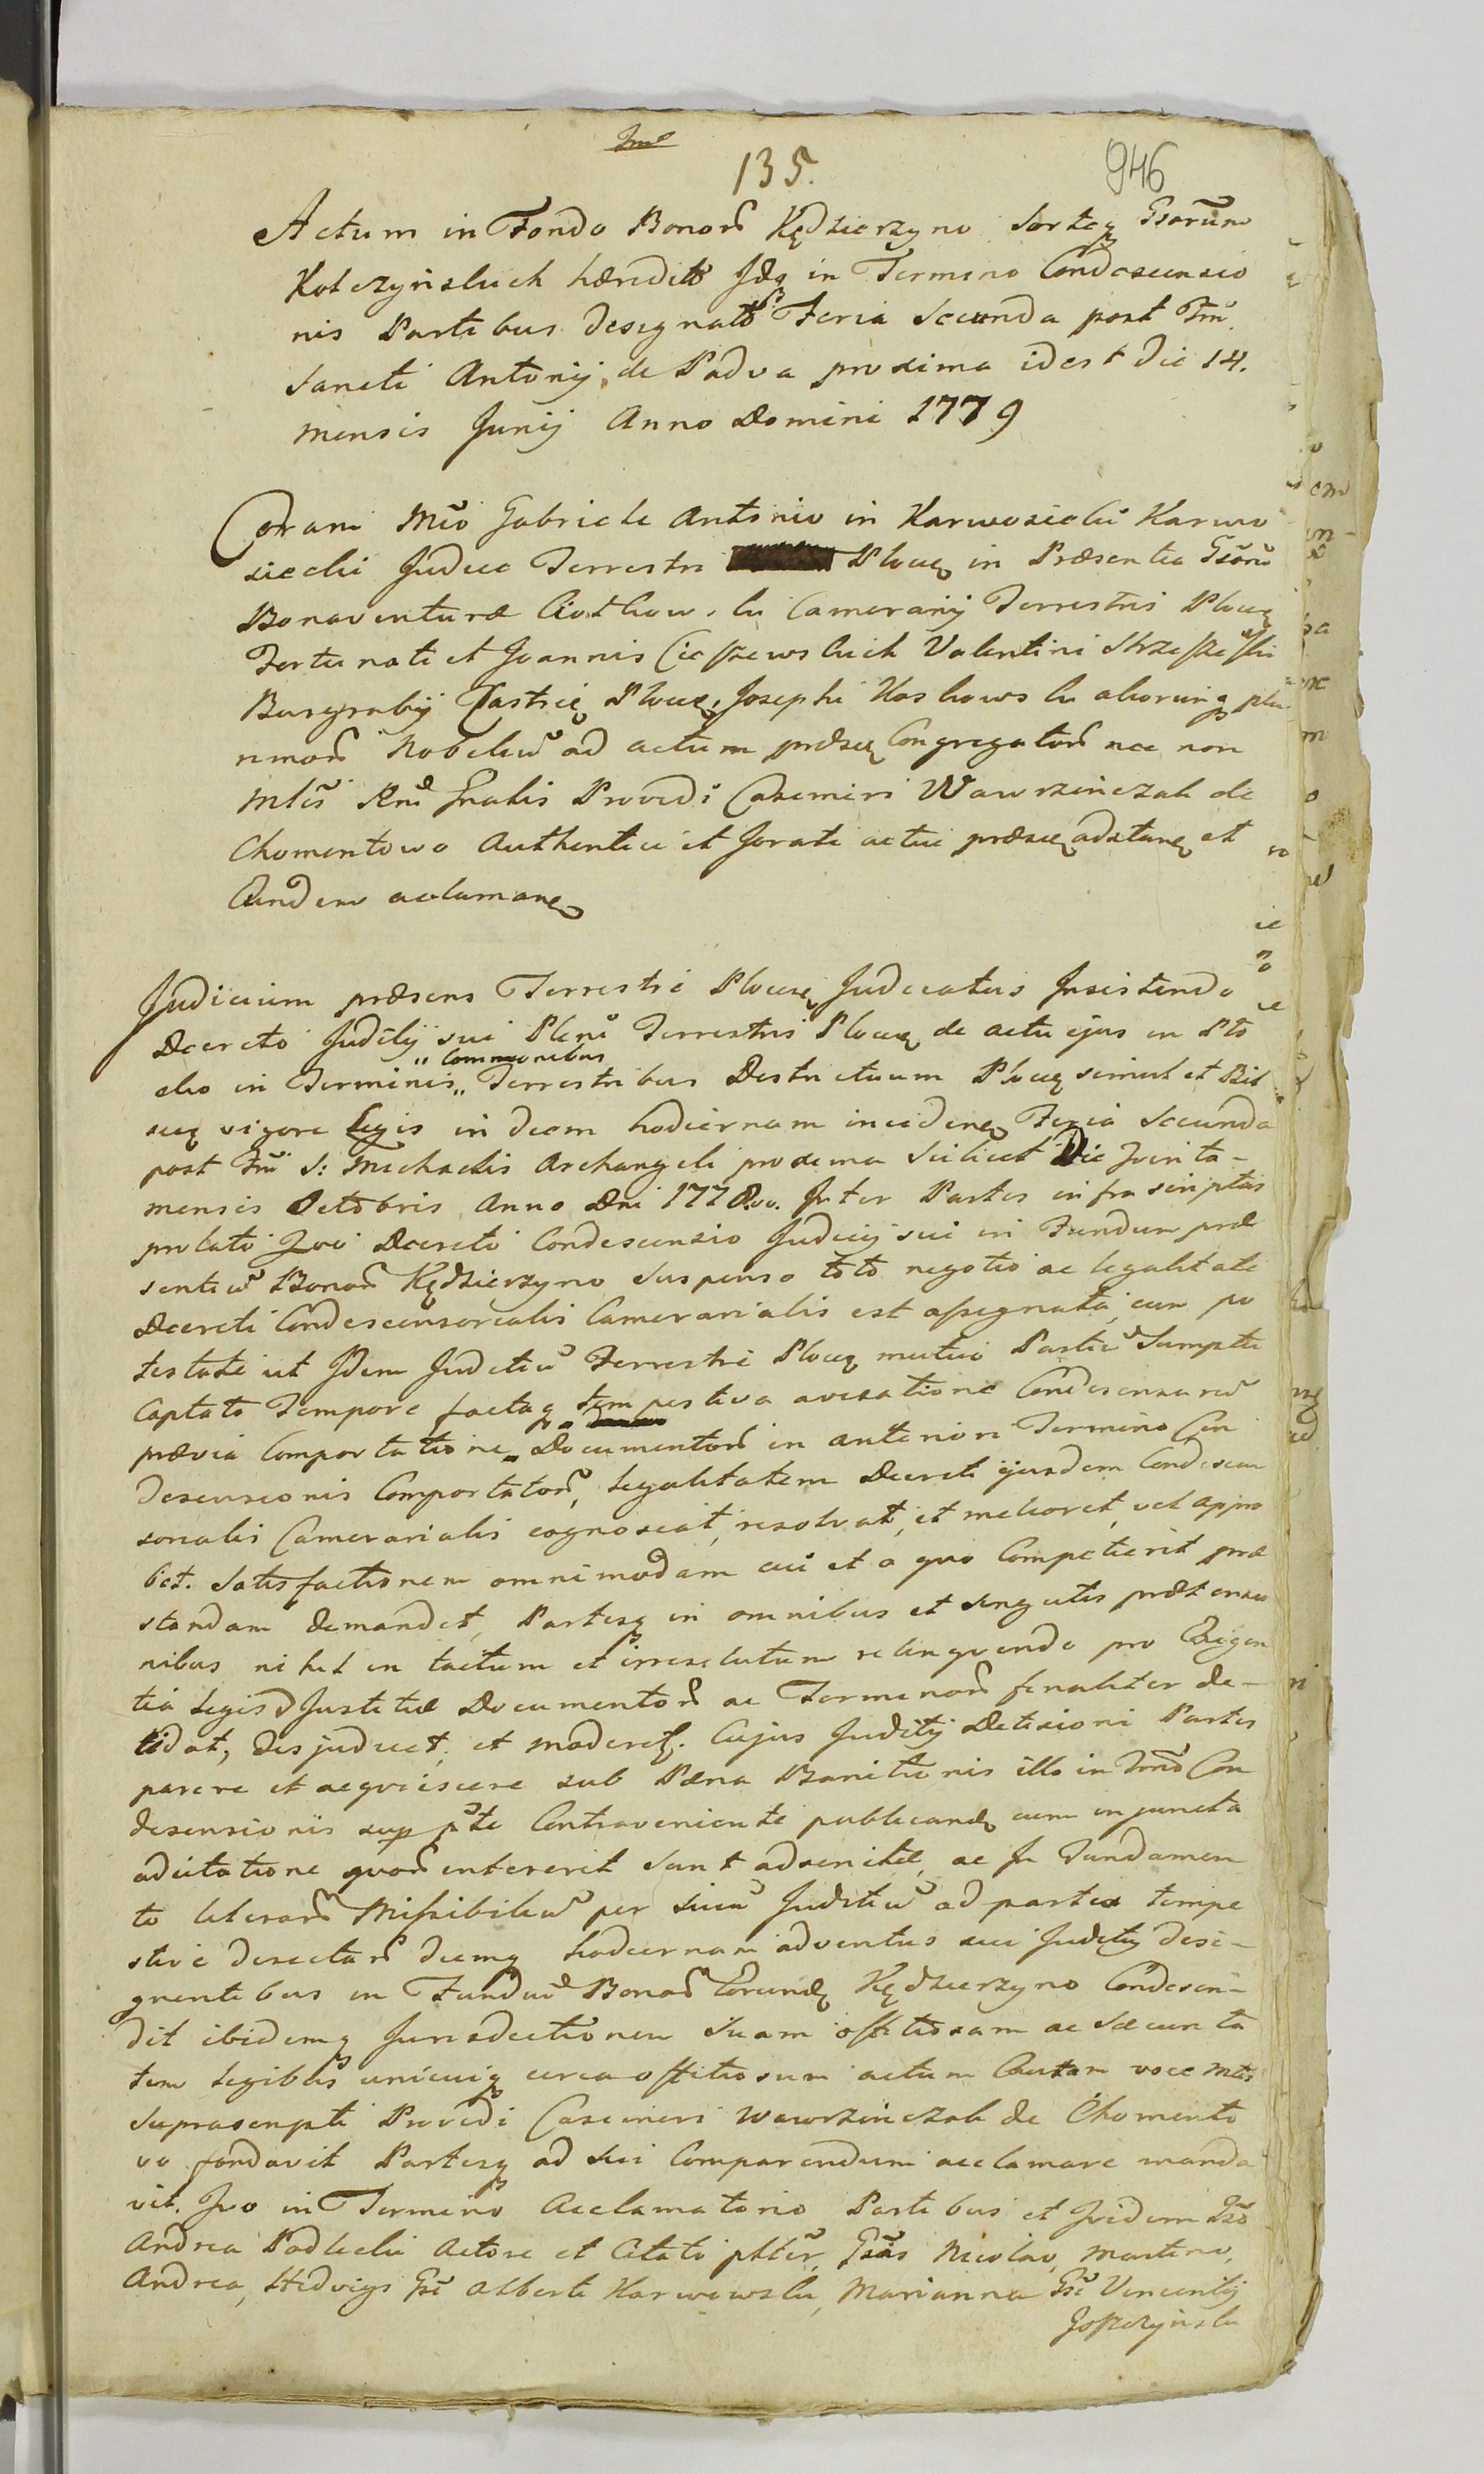 135.
946
Actum in Fondo Bonor̃ Kędzierzyno Sorteq Gsorũm
Kolczyńskich hæredit Jdq in Termino Condescensio
nis Partibus designato Feria Secunda post Fm̃
Sancti Antonij de Padva proxima idest die 14.
mensis Junij Anno Domini 1779
Coram Mco Gabriele Antonio in Karwosieki Karwo
siecki Judice Terrestri Plocę in Præsentia Gsorũ
Bonaventuræ Ciotkowski Camerarij Terrestris Plocę
Fortunati et Joannis Cieszewskich Valentini Strzeszewski
Burgrabij Castrię Plocę, Josephi Kaskowski aliorumq plu
rimor̃ Nobiliũ ad actum præsę Congregator̃ nec non
Mlis Rni Gnalis Providi Casimiri Wawrzinczak de
Chomentowo Authentici et Jorati actui præsę adstanę et
Eundem aclamanę
Judicium præsens Terrestre Plocę Judicatus Insistendo
Decreto Juditij sui Pleni Terrestris Plocę de actu ejus in Plo
cko in Terminis „ Terrestribus Districtuum Plocę simul et Biel
„ Communibus
scę vigore Legis in diem hodiernam incidenę Feria Secunda
post Fm̃ S: Michaelis Archangeli proxima Scilicet Die Quinta
mensis Octobris Anno Dni 1778vo. Inter Partes infra scriptas
prolato Quo Decreto Condescensio Judicij sui in Fundum præ
sentiũ Bonor̃ Kędzierzyno Suspenso toto negotio ac legalitate
Decreti Condescensorialis Camerarialis est assignata, cum po
testate ut Idem Juditiũ Terrestre Plocę mutuo Partiũ Sumptu
Captato Tempore factaq tempestiva avisatione Condescensurũ
prævia Comportatione „ Documentor̃ in anteriori Termino Con
descensionis Comportator̃, legalitatem Decreti ejusdem Condescen
sorialis Camerarialis cognoscat, resolvat, et melioret, vel appro
bet. Satisfactionem omnimodam cui et a quo Competierit præ
standam demandet, Partesq in omnibus et singulis prætensio
nibus nihil in tactum et irresolutum relinquendo pro Exigen
tia Legis Justitiæ Documentor̃ ac Terminor̃ finaliter de-
cidat, disjudicet, et moderet. Cujus Juditij Decisioni Partes
parere et acquiescere sub Pœna Banitionis illo in Tnno Con
descensionis sup pte Contraveniente publicandę cum injuncta
adcitatione quor̃ intererit sant adscnitæ, ac In Fundamen
to literar̃ Missibiliũ per Suũ Juditiũ ad partes tempe
stive directar̃ diemq hodiernam adventus sui Juditij desi-
gnentibus in Fundum Bonor̃ Eorundę Kędzierzyno Condescen-
dit ibidemq Jurisdictionem Suam officiosam ac Securita
tem Legibus unicuiq circa officiosum actum Cautam voce Mlis
Suprascripti Providi Casimiri Wawrzinczak de Chomento
wo fondavit Partesq ad sui Comparendum acclamare manda
vit. Quo in Termino Acclamatorio Partibus et Quidem Gso
Andrea Podlecki Actore et Citato pltir, Gsis Nicolao, Martino,
Andrea, Hedvigi Gsi Alberti Karwowski, Marianna Gsi Vincentij
Goszczyński